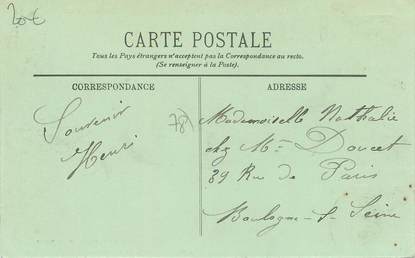 20€
CARTE POSTALE
Tous les Pays étrangers n'acceptent pas la Correspondance au recto.
(Se renseigner à la Poste).
CORRESPONDANCE
Souvenir
Henri
78
ADRESSE
Mademoiselle Nathalie
chez Mr Doucet
39 Rue de Paris
Boulogne-S-Seine